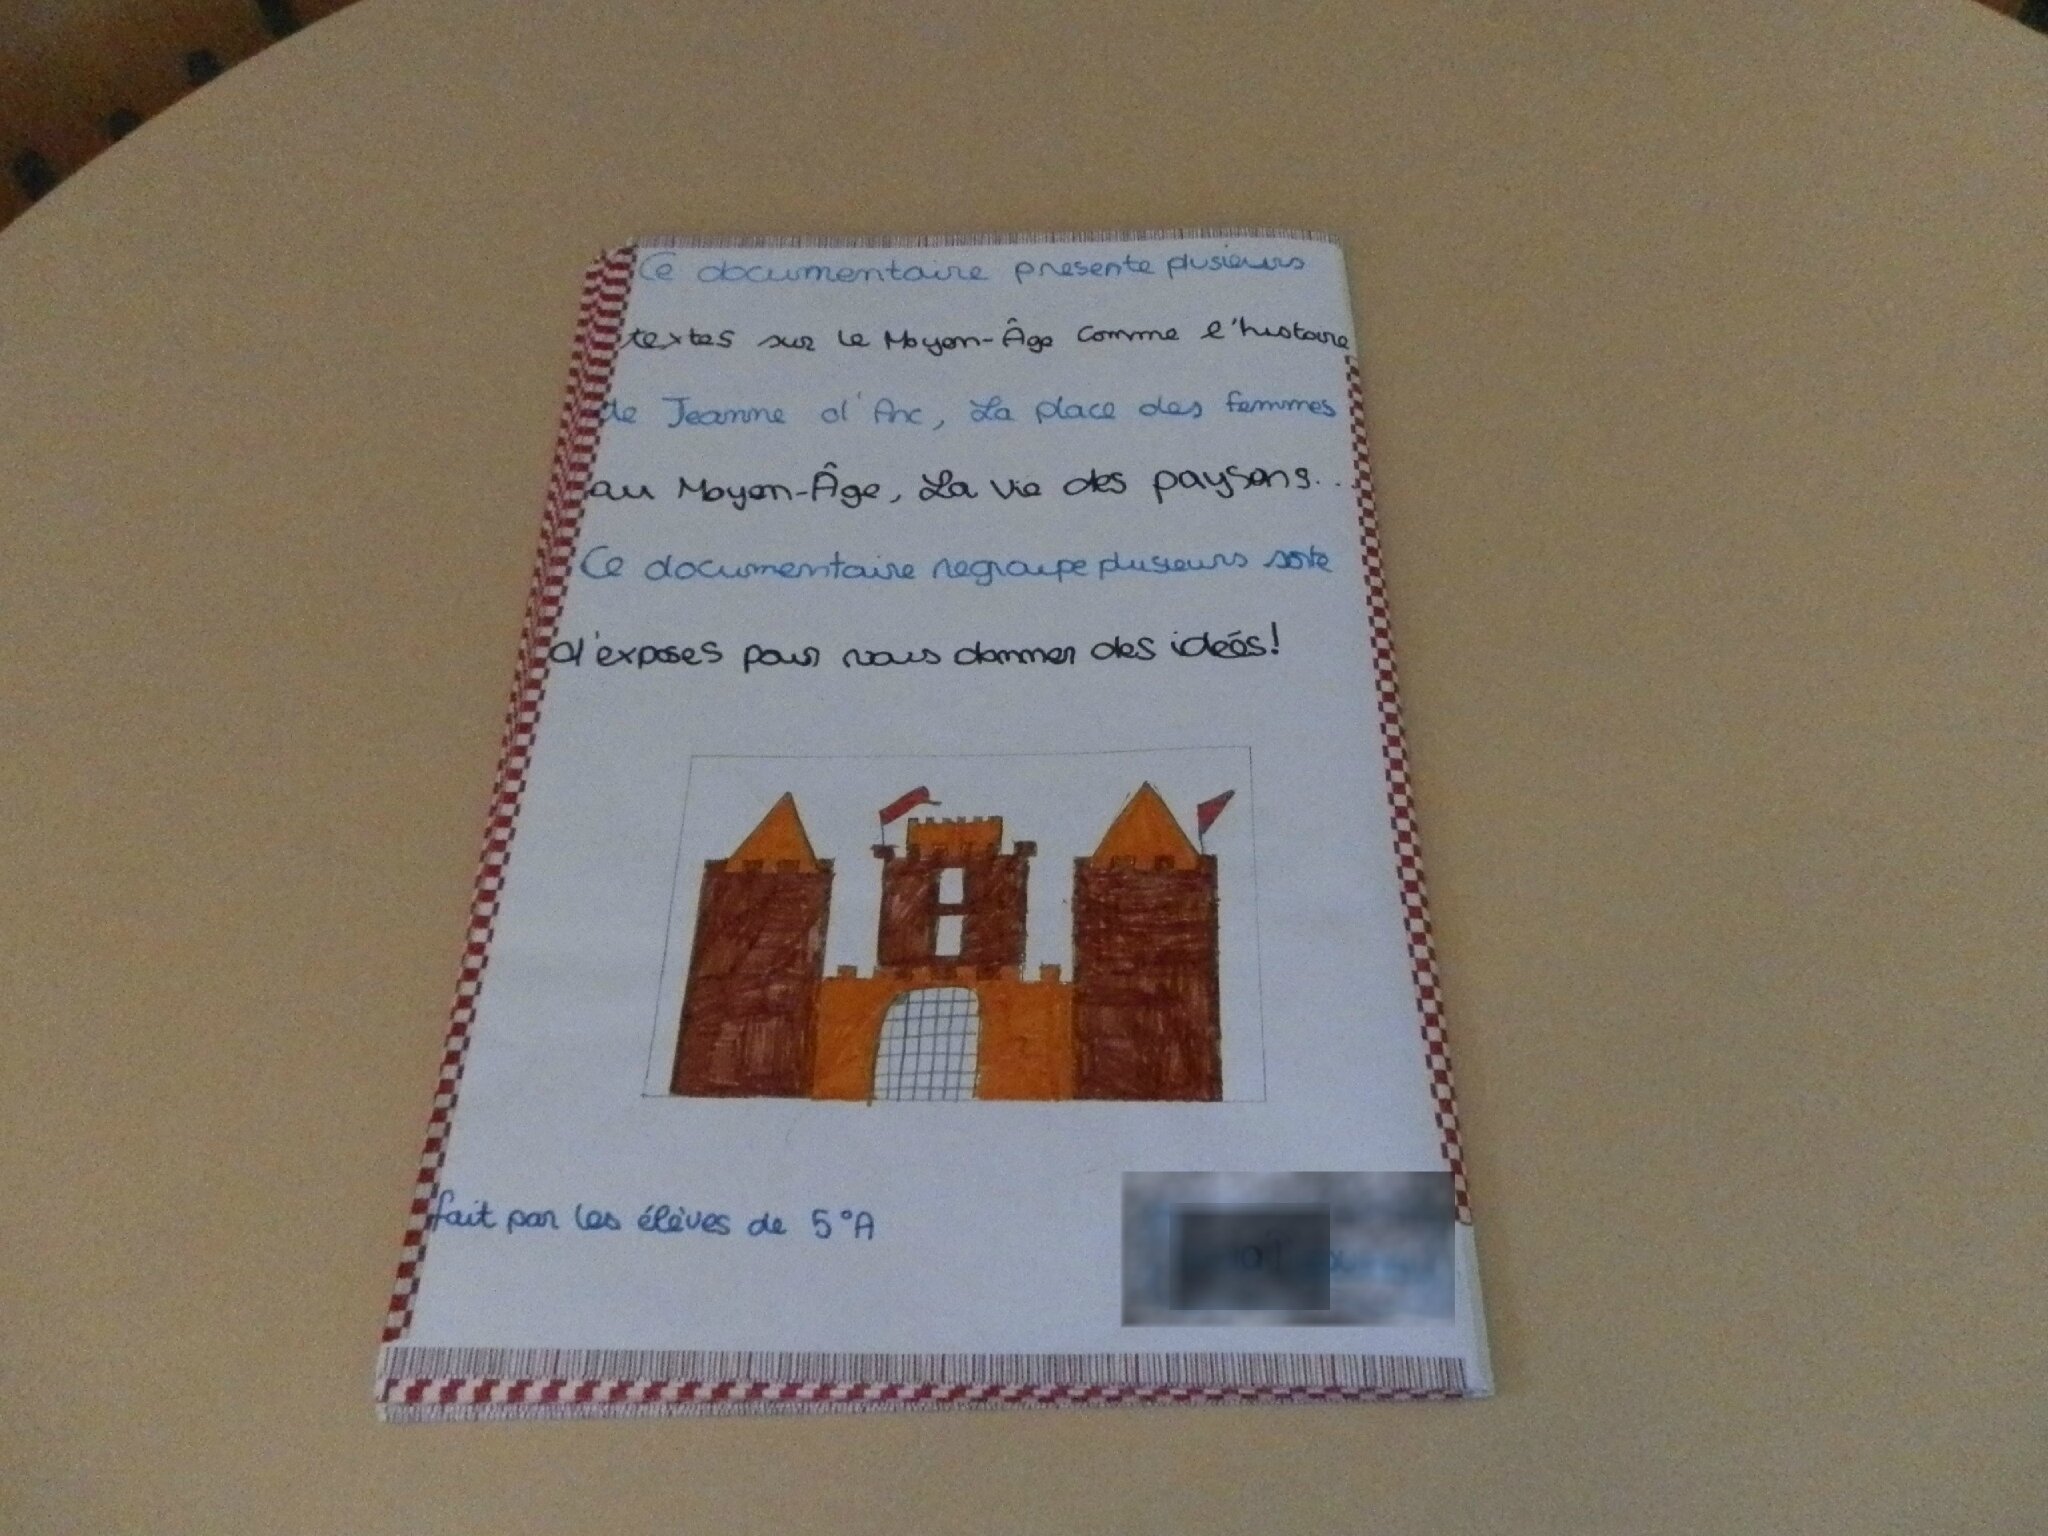 Ce documentaire presente plusieurs
textes sur le Moyen-Âge comme l'histoire
de Jeanne d'Arc, La place des femmes
au Moyen-Âge, La vie des paysans...
Ce documentaire regroupe plusieurs sorte
d'exposes pour vous donner des ideés!
fait par les élèves de 5°A